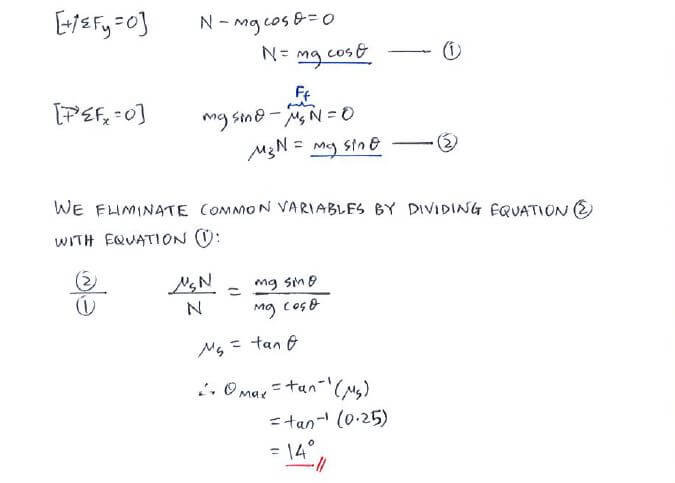 [+↑ΣFy=0] N - mg cos θ = 0
N = mg cos θ — ①
Ff
[→+ ΣFx=0] mg sin θ - μs N = 0
μsN = mg sin θ — ②
WE ELIMINATE COMMON VARIABLES BY DIVIDING EQUATION ②
WITH EQUATION ①:
②/① μsN/N = mg sin θ/mg cos θ
μs = tan θ
∴ θmax = tan⁻¹(μs)
= tan⁻¹ (0.25)
= 14°//